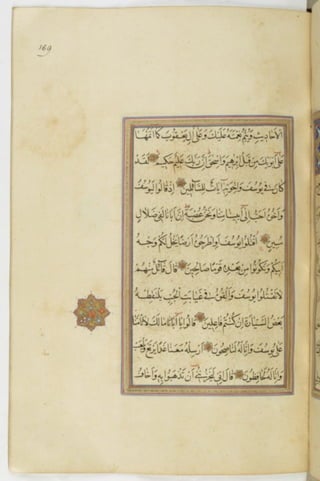 169
الاحاديث ويتم نعمته عليك وعلى ال يعقوب كما اتمها
على ابويك من قبل ابرهيم واسحق ان ربك عليم حكيم لقد
كان في يوسف واخوته ايات للسائلين اذ قالوا ليوسف
واخوه احب الى ابينا منا ونحن عصبة ان ابانا لفي ضلال
مبين اقتلوا يوسف او اطرحوه ارضا يخل لكم وجه
ابيكم وتكونوا من بعده قوما صالحين قال قائل منهم
لا تقتلوا يوسف والقوه في غيابت الجب يلتقطه
بعض السيارة ان كنتم فاعلين قالوا يا ابانا ما لك لا تامنا
على يوسف وانا له لناصحون ارسله معنا غدا يرتع ويلعب
وانا له لحافظون قال اني ليحزنني ان تذهبوا به واخاف